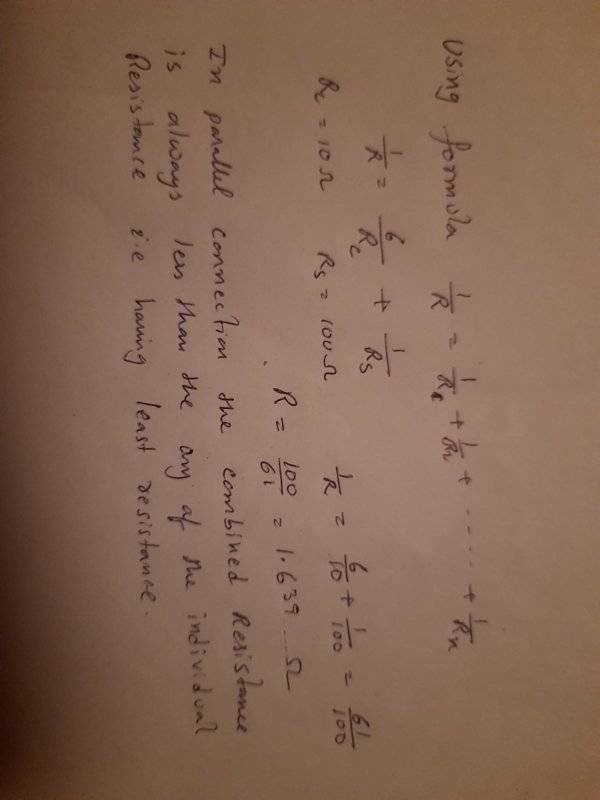 Using formula 1/R = 1/R₁ + 1/R₂ + ..... + 1/Rn
1/R = 6/Rc + 1/Rs
Rc = 10Ω Rs = 100Ω 1/R = 6/10 + 1/100 = 61/100
R = 100/61 = 1.639...Ω
In parallel connection the combined Resistance
is always less than the any of the individual
Resistance i.e having least resistance.